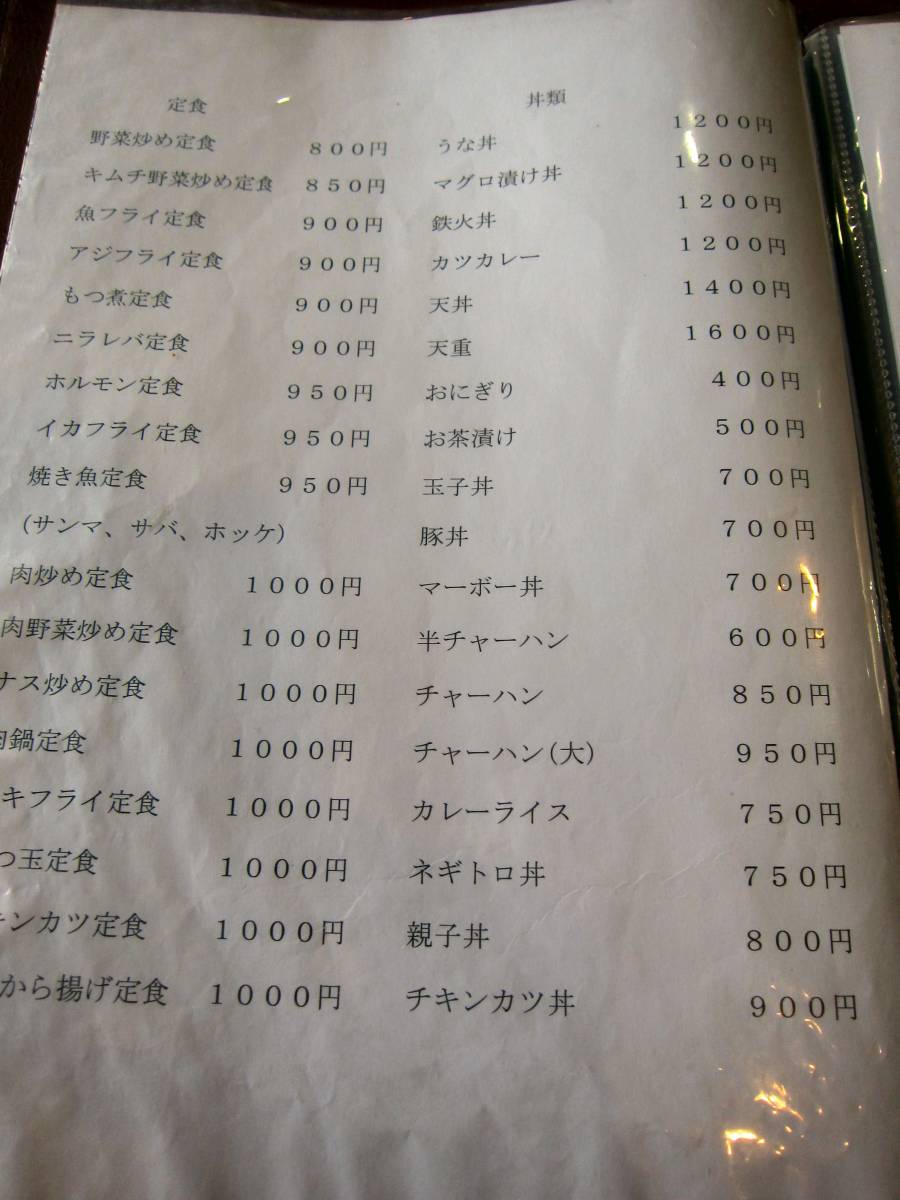 定食
野菜炒め定食 800円
キムチ野菜炒め定食 850円
魚フライ定食 900円
アジフライ定食 900円
もつ煮定食 900円
ニラレバ定食 900円
ホルモン定食 950円
イカフライ定食 950円
焼き魚定食 950円
(サンマ、サバ、ホッケ)
肉炒め定食 1000円
肉野菜炒め定食 1000円
ナス炒め定食 1000円
肉鍋定食 1000円
キフライ定食 1000円
つ玉定食 1000円
キンカツ定食 1000円
から揚げ定食 1000円
丼類
うな丼 1200円
マグロ漬け丼 1200円
鉄火丼 1200円
カツカレー 1200円
天丼 1400円
天重 1600円
おにぎり 400円
お茶漬け 500円
玉子丼 700円
豚丼 700円
マーボー丼 700円
半チャーハン 600円
チャーハン 850円
チャーハン(大) 950円
カレーライス 750円
ネギトロ丼 750円
親子丼 800円
チキンカツ丼 900円